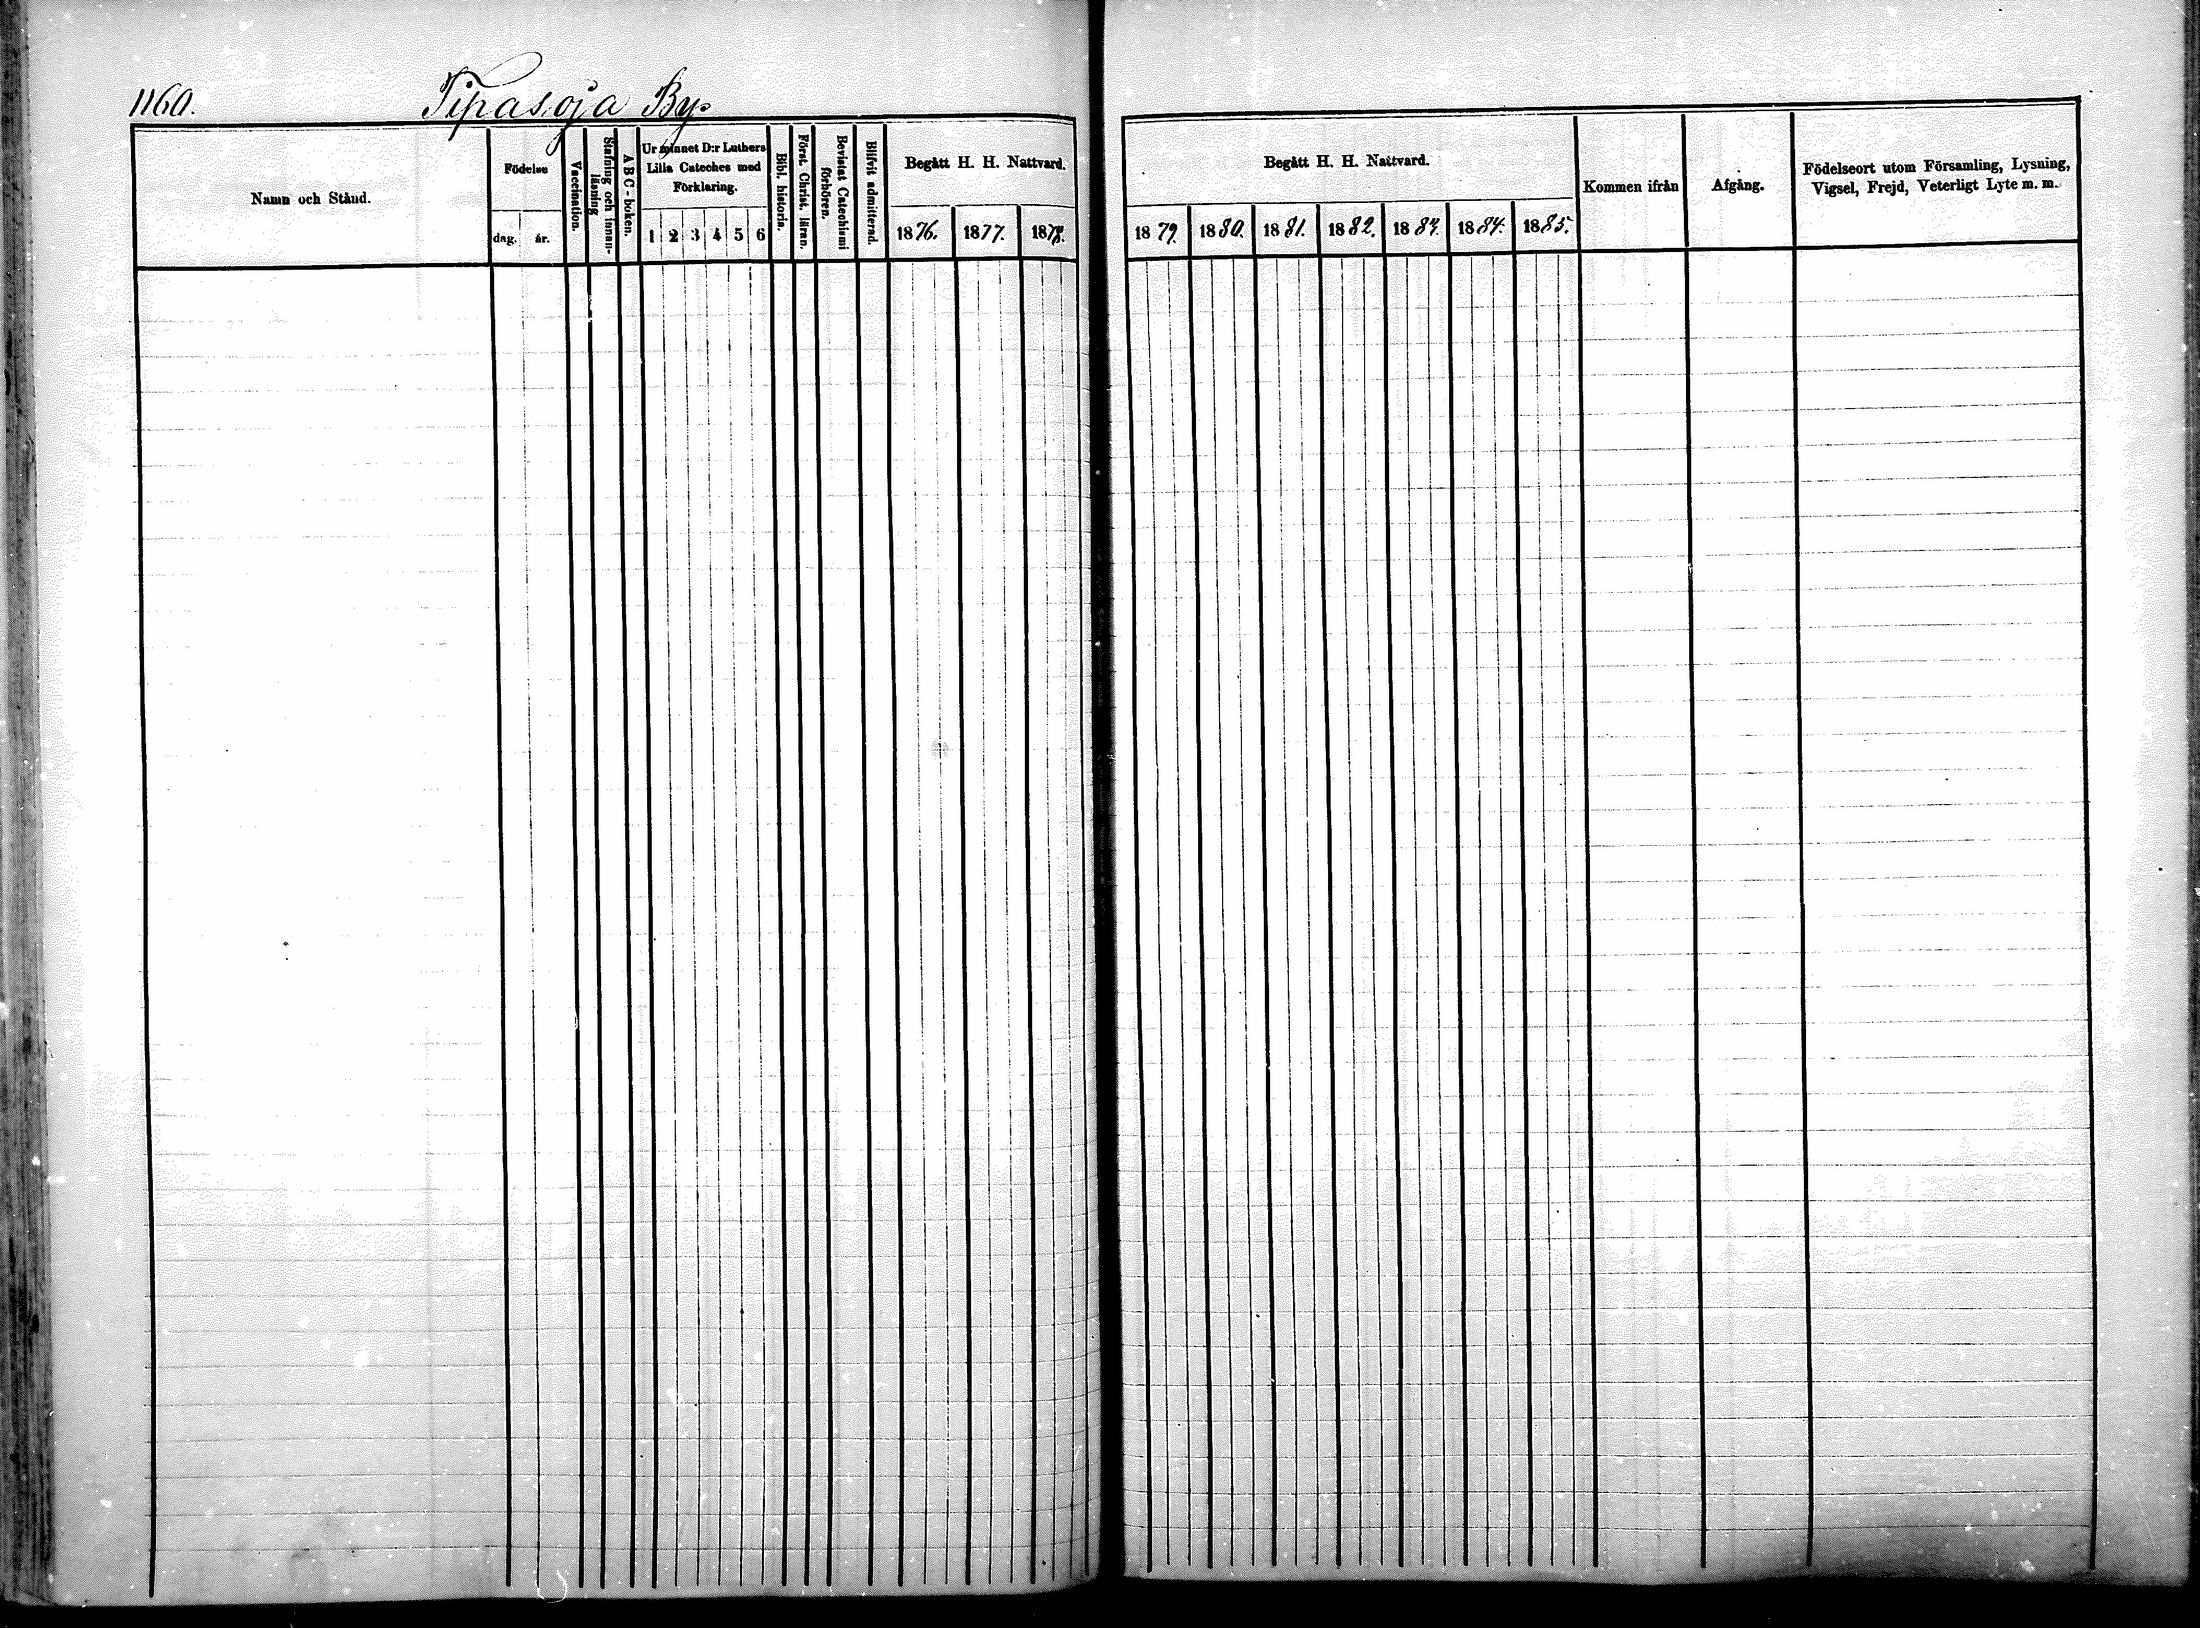 1160. Tipasoja By.
Namn och Stånd.
Födelse
dag. år.
Vaccination.
Stafning och innanläsning
ABC-boken.
Ur minnet D:r Luthers
Lilla Cateches med
Förklaring.
1 2 3 4 5 6
Bibl. historia.
Först. Christ. läran.
Bevistat Catechismi
förhören.
Blifvit admitterad.
Begått H. H. Nattvard.
1876. 1877. 1878.
Begått H. H. Nattvard.
1879. 1880. 1881. 1882. 1883. 1884. 1885.
Kommen ifrån
Afgång.
Födelseort utom Församling, Lysning,
Vigsel, Frejd, Veterligt Lyte m. m.